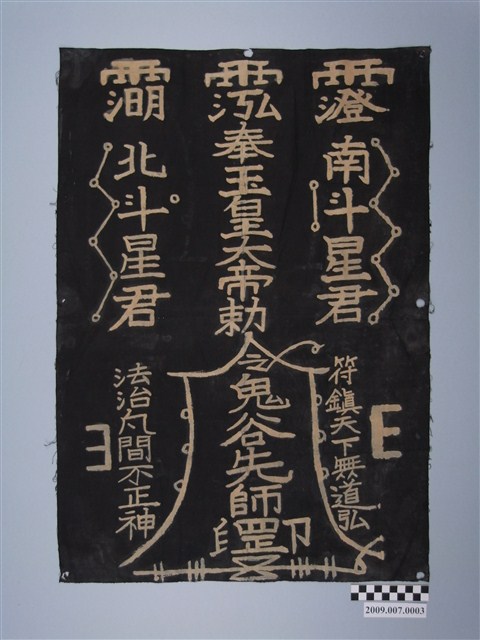 南斗星君
奉玉皇大帝勅令鬼谷先師罡印
北斗星君
符鎮天下無道弘
法治凡間不正神
2009.007.0003